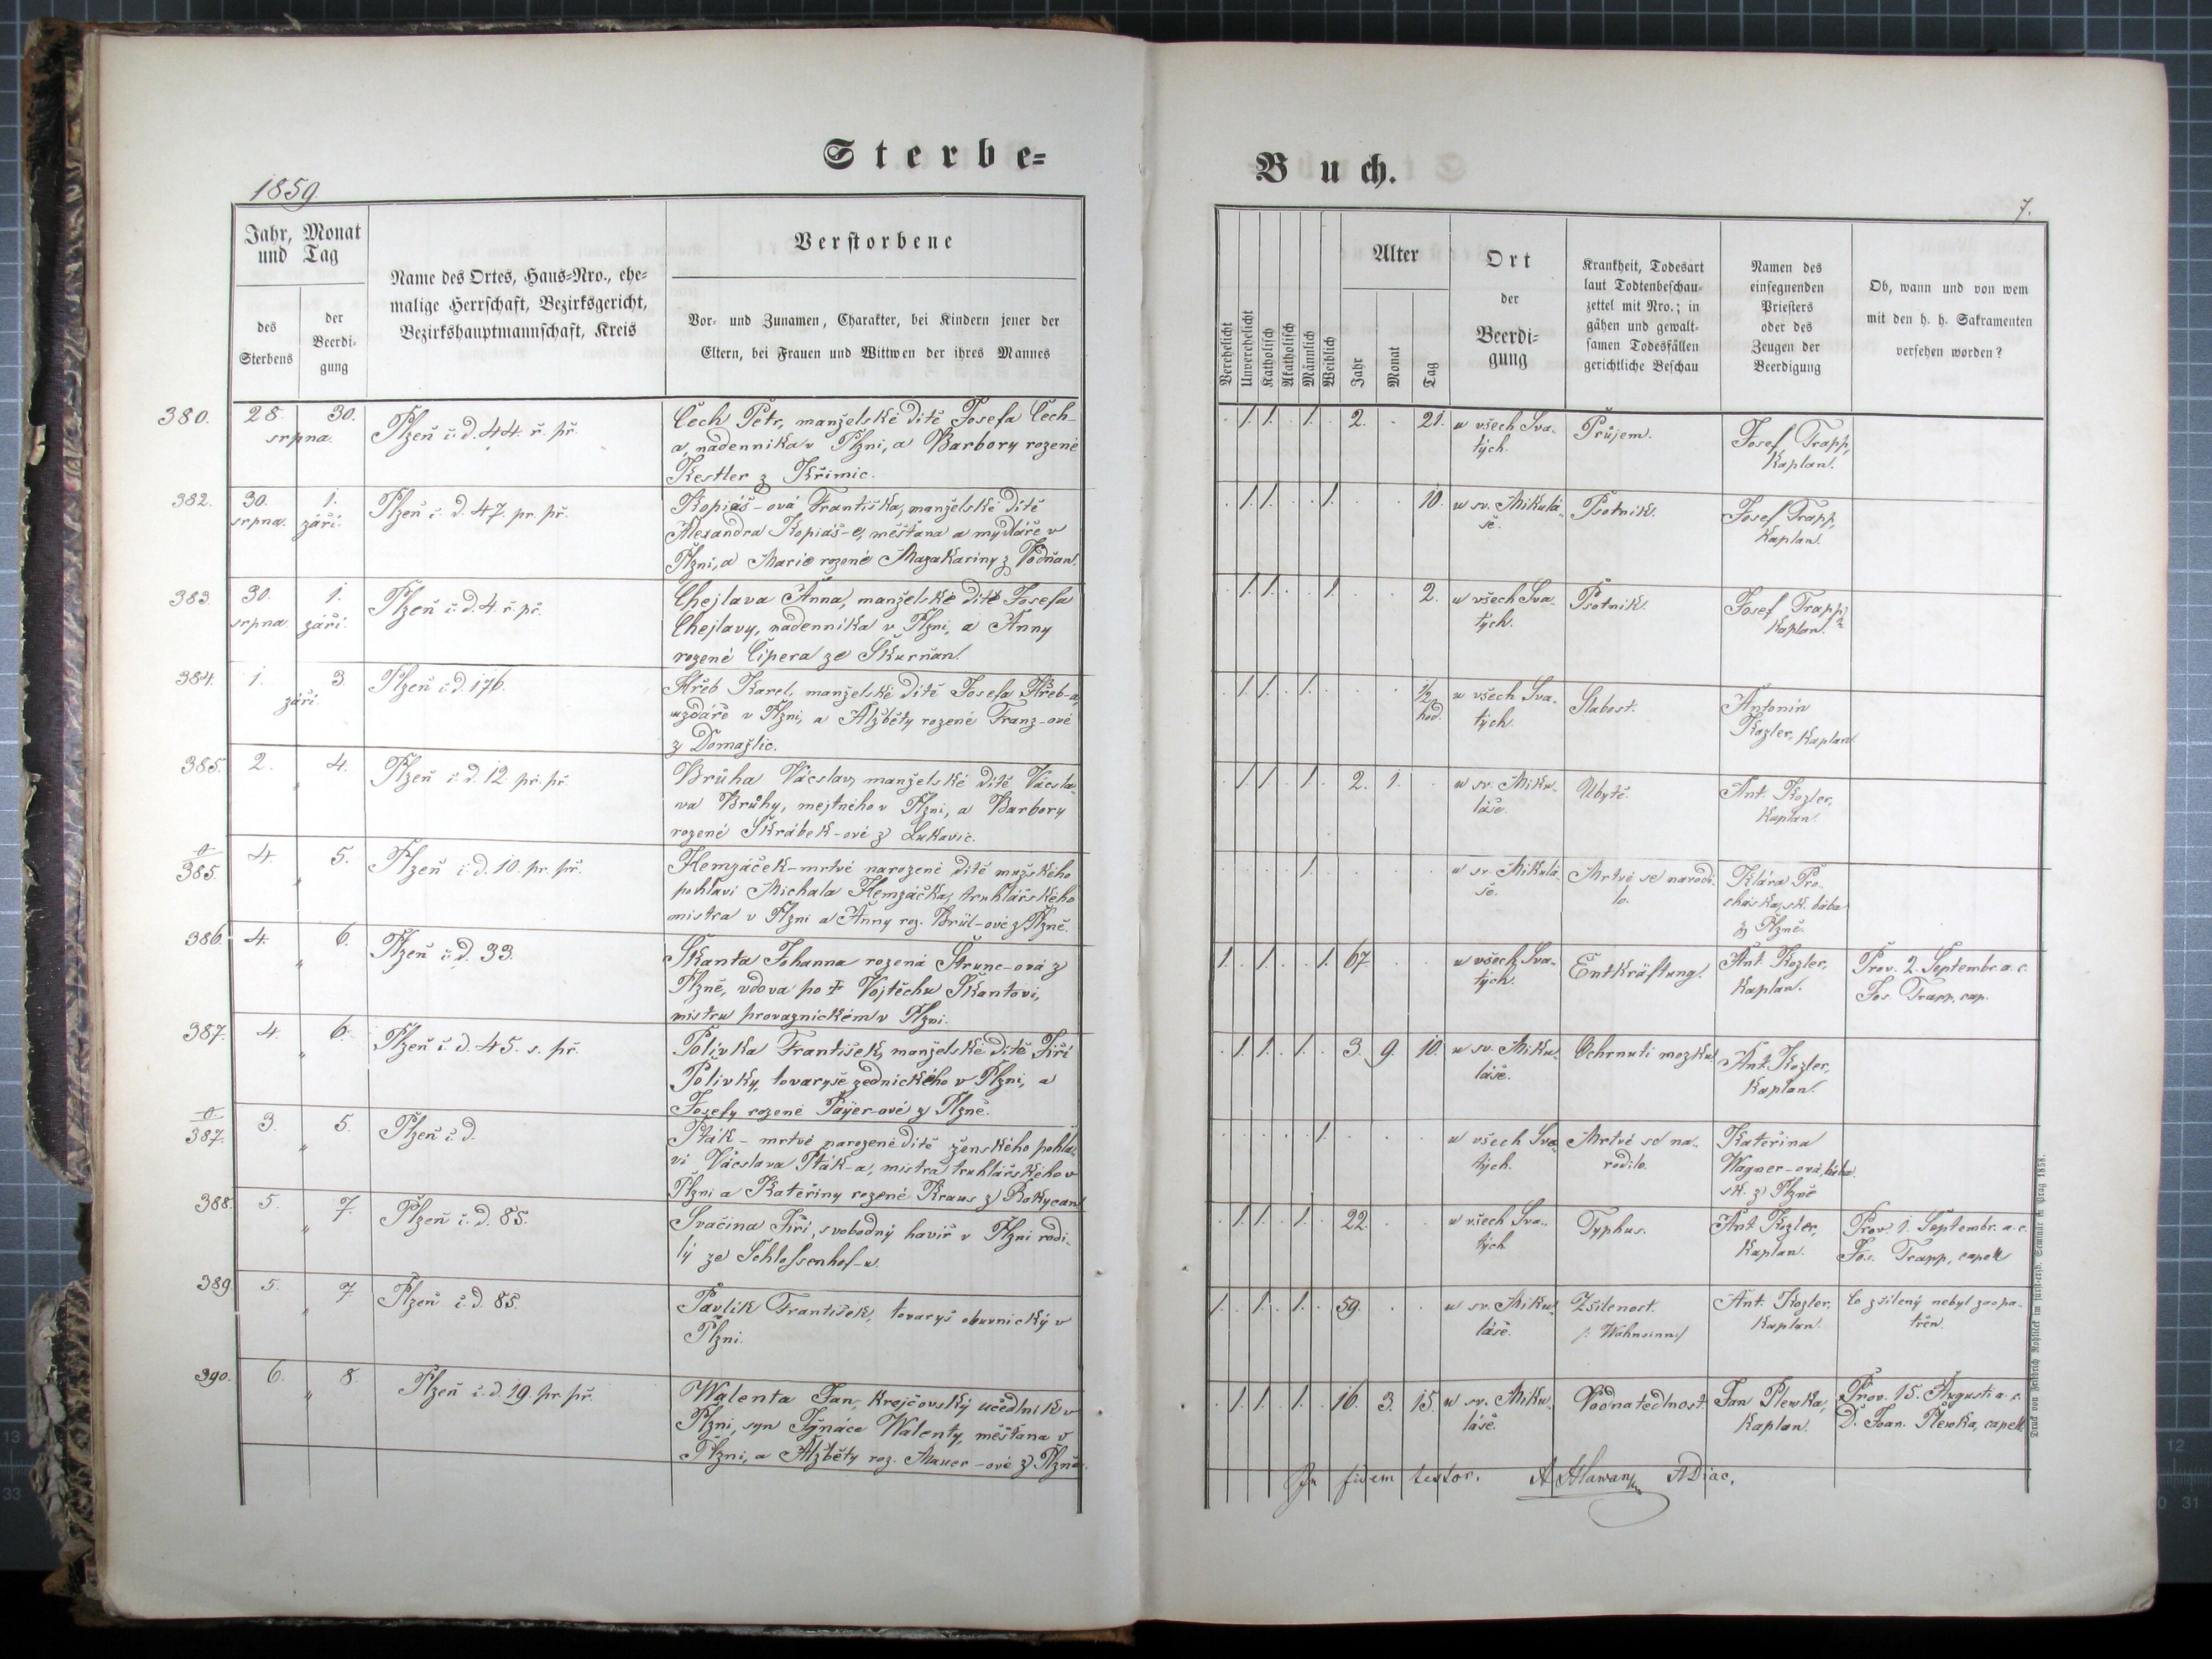 Sterbe-
Buch.
1859.
7.
Jahr, Monat
und Tag
des
Sterbens
der
Beerdi-
gung
Name des Ortes, Haus-Nro., ehe-
malige Herrschaft, Bezirksgericht,
Bezirkshauptmannschaft, Kreis
Verstorbene
Vor- und Zunamen, Charakter, bei Kindern jener der
Eltern, bei Frauen und Wittwen der ihres Mannes
Verehelicht
Unverehelicht
Katholisch
Akatholisch
Männlich
Weiblich
Alter
Jahr
Monat
Tag
Ort
der
Beerdi-
gung
Krankheit, Todesart
laut Todtenbeschau-
zettel mit Nro.; in
gähen und gewalt-
samen Todesfällen
gerichtliche Beschau
Namen des
einsegnenden
Priesters
oder des
Zeugen der
Beerdigung
Ob, wann und von wem
mit den h. h. Sakramenten
versehen worden?
380. 28. 30. Plzeň č. d. 44. ř. př.
srpna.
Čech Petr, manželské dítě Josefa Čech-
a, nádenníka v Plzni, a Barbory rozené
Kestler z Křimic.
. 1. 1. . 1. . 2. . 21. u všech Sva-
tých.
Průjem.
Josef Trapp,
Kaplan.
382. 30. 1. Plzeň č. d. 47. pr. př.
srpna. září.
Kopiáš-ová Františka, manželské dítě
Alexandra Kopiáš-e, měštana a mydláře v
Plzni, a Marie rozené Mazakariny z Vodňan.
. 1. 1. . . 1. . . 10. u sv. Mikulá-
še.
Psotník.
Josef Trapp,
Kaplan.
383. 30. 1. Plzeň č. d. 4. ř. př.
srpna. září.
Chejlava Anna, manželské dítě Josefa
Chejlavy, nádenníka v Plzni, a Anny
rozené Čipera ze Skurňan.
. 1. 1. . . 1. . . 2. u všech Sva-
tých.
Psotník.
Josef Trapp,
Kaplan.
384. 1. 3. Plzeň č. d. 176.
září.
Hřeb Karel, manželské dítě Josefa Hřeb-a,
uzdáře v Plzni, a Alžběty rozené Franz-ové
z Domažlic.
. 1. 1. . 1. . . . 1/2 hod. u všech Sva-
tých.
Slabost.
Antonín
Kozler, Kaplan.
385. 2. „ 4. Plzeň č. d. 12. pr. př.
Brůha Václav, manželské dítě Václa-
va Brůhy, mejtného v Plzni, a Barbory
rozené Škrábek-ové z Lukavic.
. 1. 1. . 1. . 2. 1. . u sv. Miku-
láše.
Ubytě.
Ant. Kozler,
Kaplan.
0/385. 4. „ 5. Plzeň č. d. 10. pr. př.
Hemzáček-mrtvé narozené dítě mužského
pohlaví Michala Hemzáčka, truhlářského
mistra v Plzni a Anny roz. Brül-ové z Plzně.
. . . . 1. . . . . u sv. Mikulá-
še.
Mrtvé se narodi-
lo.
Klára Pro-
cháska, sk. bába
z Plzně.
386. 4. „ 6. Plzeň č. d. 33.
Skanta Johanna rozená Štrunc-ová z
Plzně, vdova po † Vojtěchu Škantovi,
mistru provaznickém v Plzni.
1. . 1. . . 1. 67. . . u všech Sva-
tých.
Entkräftung.
Ant. Kozler,
Kaplan.
Prov. 2. Septembr. a. c.
Jos. Trapp, cap.
387. 4. „ 6. Plzeň č. d. 45. s. př.
Polívka František, manželské dítě Jiří
Polívky, tovaryše zednického v Plzni, a
Josefy rozené Payer-ové z Plzně.
. 1. 1. . 1. . 3. 9. 10. u sv. Miku-
láše.
Ochrnutí mozku.
Ant. Kozler,
Kaplan.
0/387. 3. „ 5. Plzeň č. d.
Pták - mrtvé narozené dítě ženského pohla-
ví Václava Pták-a, mistra truhlářského v
Plzni a Kateřiny rozené Kraus z Rokycan.
. . . . . 1. . . . u všech Sva-
tých.
Mrtvé se na-
rodilo.
Kateřina
Wagner-ová, bába
sk. z Plzně
388. 5. „ 7. Plzeň č. d. 85.
Svačina Jiří, svobodný havíř v Plzni rodi-
lý ze Schlossenhof-u.
. 1. 1. . 1. . 22. . . u všech Sva-
tých
Typhus.
Ant Kozler,
Kaplan.
Prov. 1. Septembr. a. c.
Jos. Trapp, capell
389. 5. „ 7. Plzeň č. d. 85.
Pavlík František, tovaryš obuvnický v
Plzni.
1. . 1. . 1. . 59. . . u sv. Miku-
láše.
Zšílenost.
/: Wahnsinn :/
Ant. Kozler,
Kaplan.
Co zšílený nebyl zaopa-
třen.
390. 6. „ 8. Plzeň č. d. 19. pr. př.
Walenta Jan, krejčovský učedlník v
Plzni, syn Ignáce Walenty, měštana v
Plzni, a Alžběty roz. Mauer-ové z Plzně.
. 1. 1. . 1. . 16. 3. 15. u sv. Miku-
láše.
Vodnatedlnost.
Jan Plewka,
Kaplan.
Prov. 15. Augusti a. c.
D. Joan. Plewka, capell.
In fidem testor. A Hlawan ADiac.
Druck von Fried­rich Rohliček im fürst-erzb. Seminär in Prag 1858.